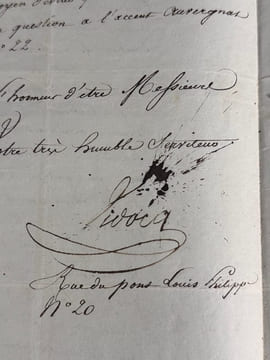 question a l'accent auvergnat
n° 22.
l'honneur d'être Messieurs
Votre très humble Serviteur
Vidocq
Rue du pont Louis Philippe
N° 20